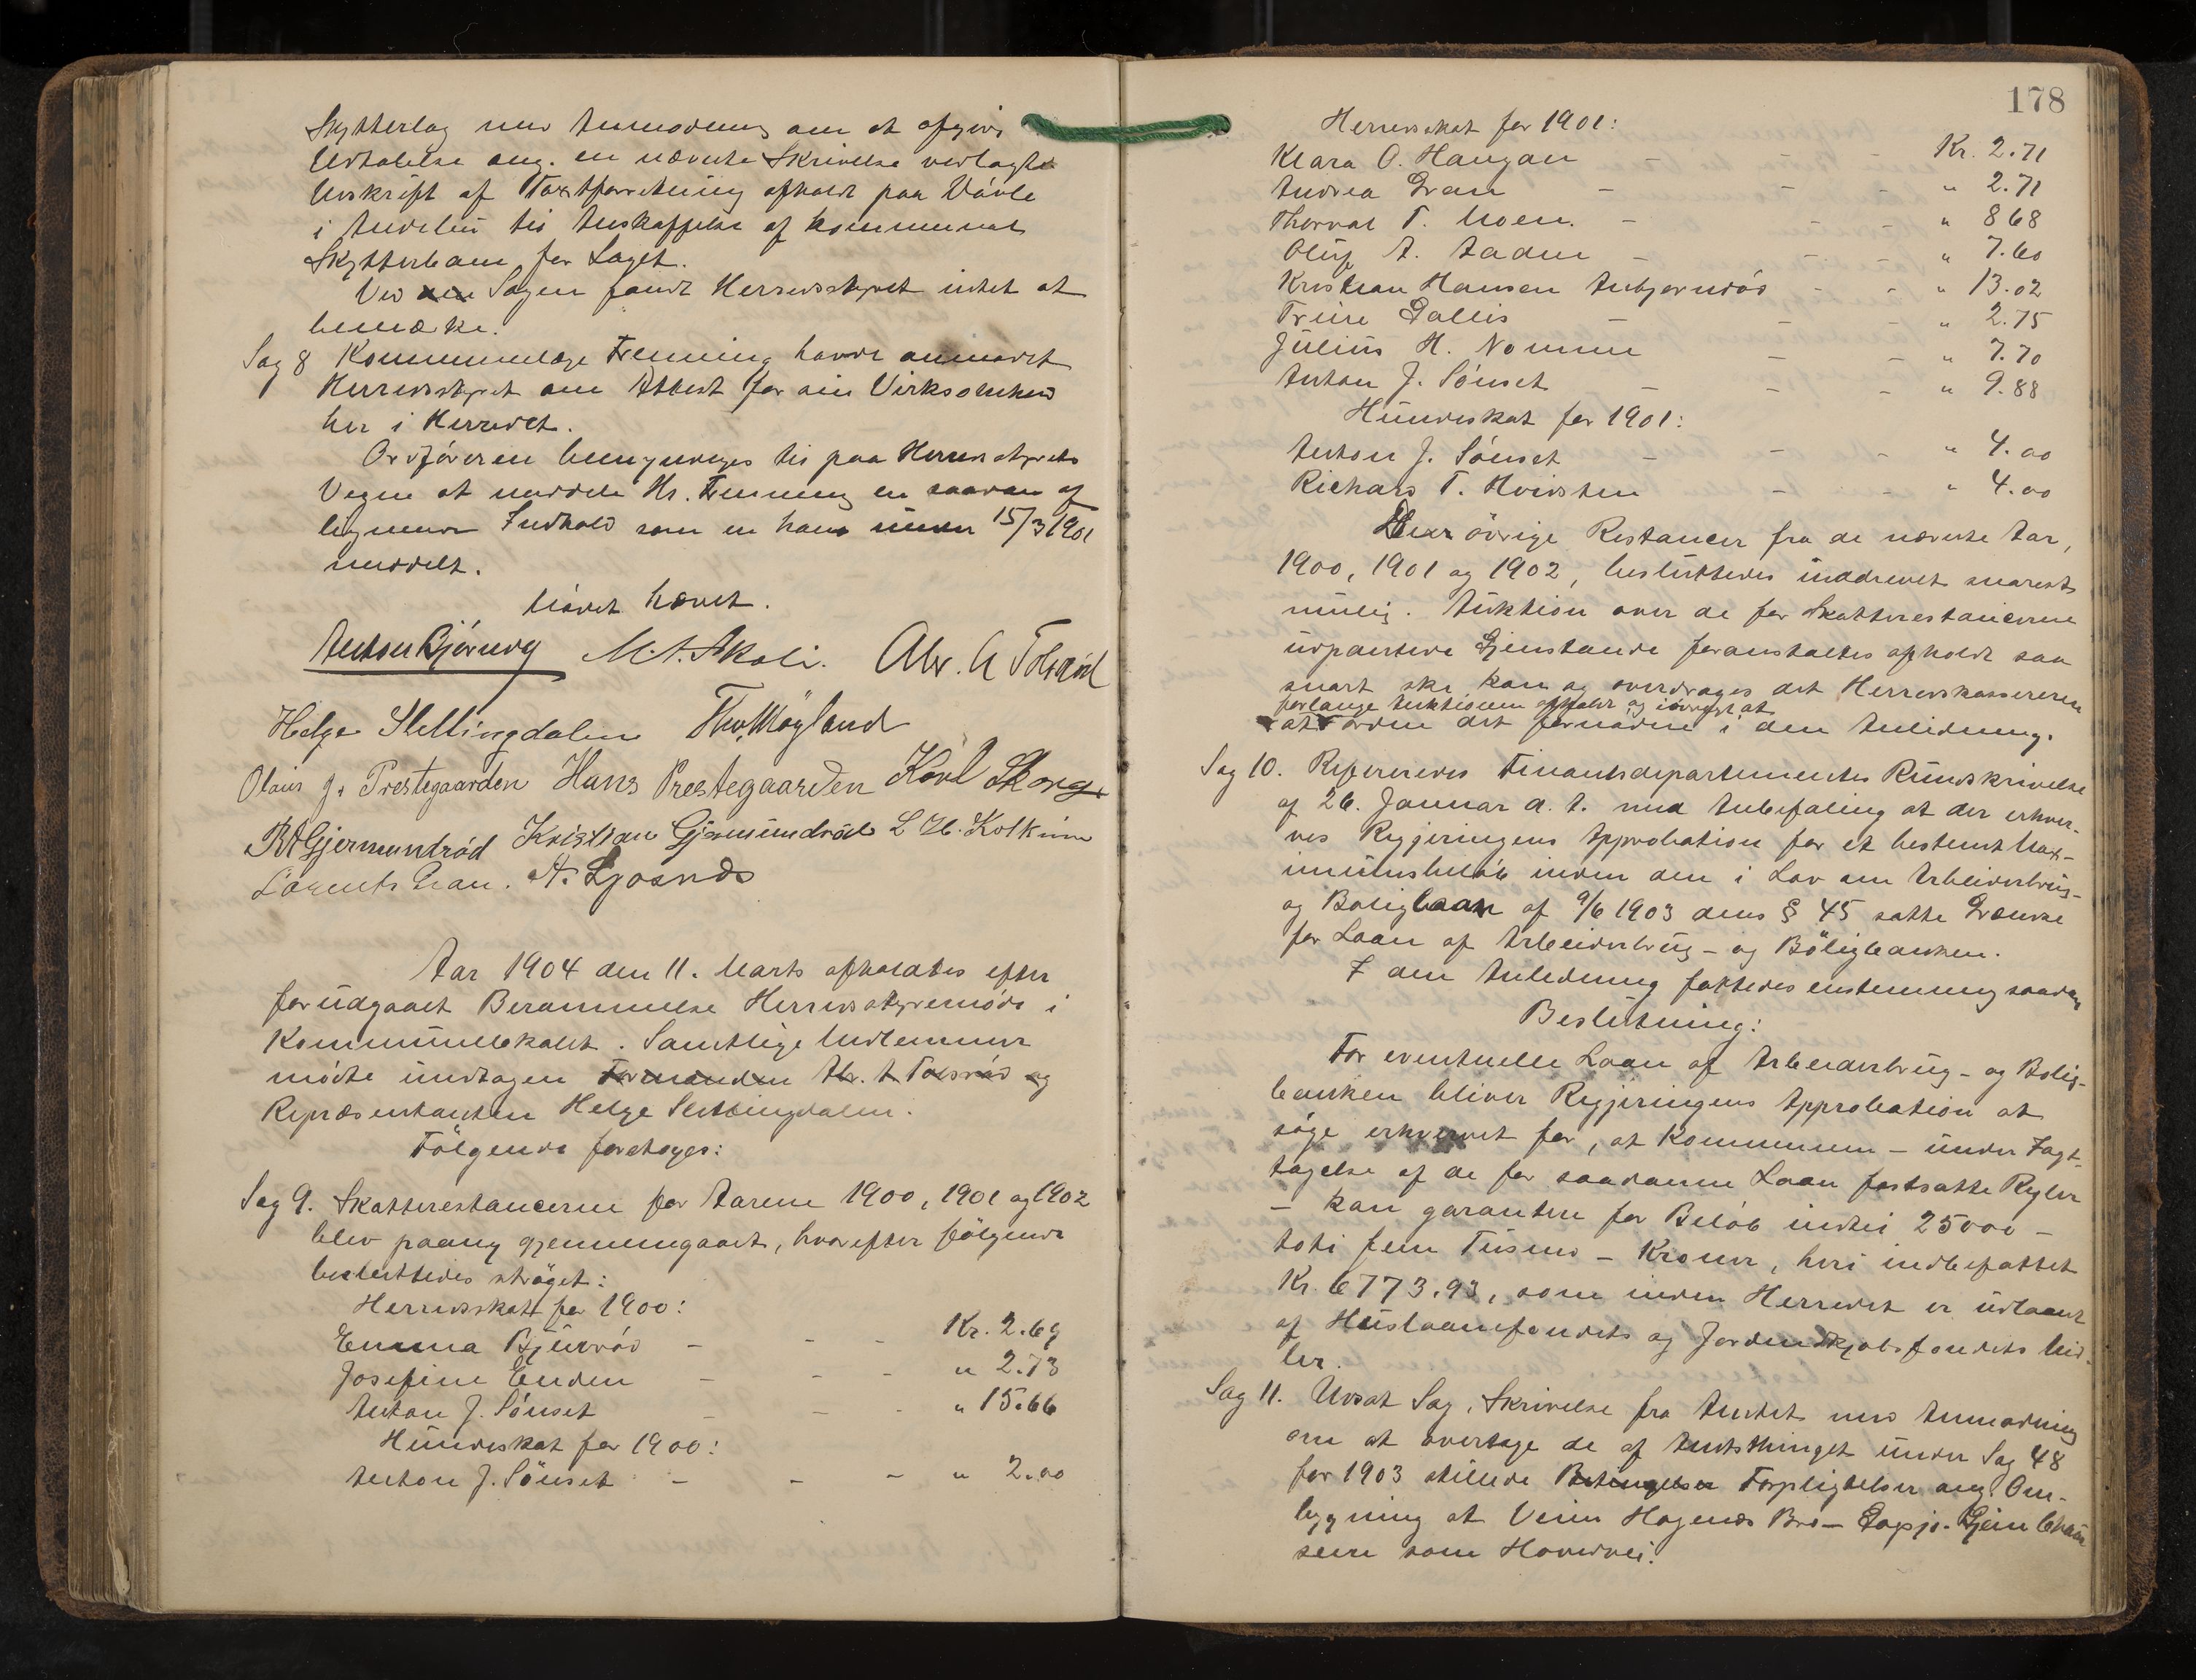 Skytterlag med Anmodning om at afgive
Udtalelse ang. en nævnte Skrivelse vedlagte
Udskrift af Taxtforretning afholdt paa Vävle
i Andledn til Anskaffelse af kommunal
Skytterbane for Laget.
Ved den Sagen fandt Herredsstyret intet at
bemærke.
Sag 8 Kommunelæge Fleming havde anmodet
Herredsstyret om Attest for sin Virksomhed
her i Herredet.
Ordføreren bemyndiges til paa Herredsstyrets
Vegne at meddele Hr. Fleming en saadan af
lignende Indhold som en ham under 15/3 1901
meddelt.
Mødet hævet.
Anton Bjørndy M. A. Skoli. Alx. A Tolsrød
Helge Slettingdalen Thv. Møgland
Olaus J. Prestegaarden Hans Prestegaarden Karl Skorge
R A Gjermundrød Kristian Gjermundrød L H. Kolkinn
Laurits Gran. A. Ljosnæs
Aar 1904 den 11. Marts afholdtes efter
forudgaaet Berammelse Herredsstyremøde i
Kommunelokalet. Samtlige Medlemmer
mødte undtagen Formanden Alx. A Tolsrød og
Repræsentanten Helge Slettingdalen.
Følgende foretoges:
Sag 9. Skatterestancerne for Aarene 1900, 1901 og 1902
blev paany gjennemgaaet, hvorefter følgende
besluttedes strøget:
Herredsskat for 1900:
Emma Bjurrød - - - Kr. 2.69
Josefine Enden - - - " 2.73
Anton J. Sønset - - - " 15.66
Hundeskat for 1900:
Anton J. Sønset - - - " 2.00
178
Herredsskat for 1901:
Klara O. Haugan - - - Kr. 2.71
Andrea Gran - - - " 2.71
Thorval T. Moen. - - - " 8 68
Oluf A. Aadne - - - " 7.60
Kristian Hansen Anbjørnrød - - " 13.02
Trine Gallis - - - " 2.75
Julius H. Nomme - - " 7.70
Anton J. Sønset - - - " 9.88
Hundeskat for 1901:
Anton J. Sønset - - - " 4.00
Richard T. Hvidsten - - - 4.00
De øvrige Restancer fra de nævnte Aar,
1900, 1901 og 1902, besluttedes inddrevet snarest
mulig. Auktion over de for Skatterestancerne
udpantede Gjenstande foranstaltes afholdt saa
snart ske kan og overdrages det Herredskassereren
forlange Auktionen afholdt og iøvrigt at
at ordne det fornødne i den Anledning.
Sag 10. Refereredes Finantsdepartementes Rundskrivelse
af 26. Januar d. A. med Anbefaling at der erhver-
ves Regjeringens Approbation for et bestemt Max-
imumsbeløb inden den i Lov om Arbeiderbrug-
og Boliglaan af 9/6 1903 dens § 45 satte Grændse
for Laan af Arbeiderbrug- og Boligbanken.
I den Anledning fattedes enstemmig saadan
Beslutning:
For eventuelle Laan af Arbeiderbrug- og Bolig-
banken bliver Regjeringens Approbation at
søge erhvervet for, at Kommunen - under Iagt-
tagelse af de for saadanne Laan fastsatte Regler
- kan garantere for Beløb indtil 25000 -
toti fem Tusind - Kroner, heri indbefattet
Kr. 6773.93, som inden Herredet er udlaant
af Huslaanefondets og Jordindkjøbsfondets Mid-
ler.
Sag 11. Udsat Sag, Skrivelse fra Amtet med Anmodning
om at overtage de af Amtsthinget under Sag 48
for 1903 stillede Betingelser Forpligtelser ang. Om-
bygning at Veien Hagenæs Bro - Gopjo-
seen som Hovedvei.